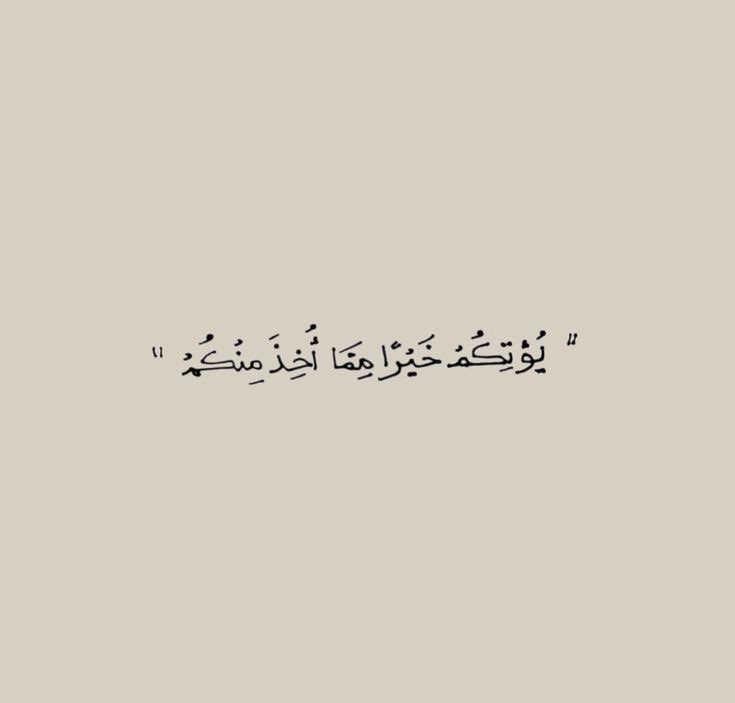 " يُؤْتِكُمْ خَيْرًا مِمَّا أُخِذَ مِنْكُمْ "